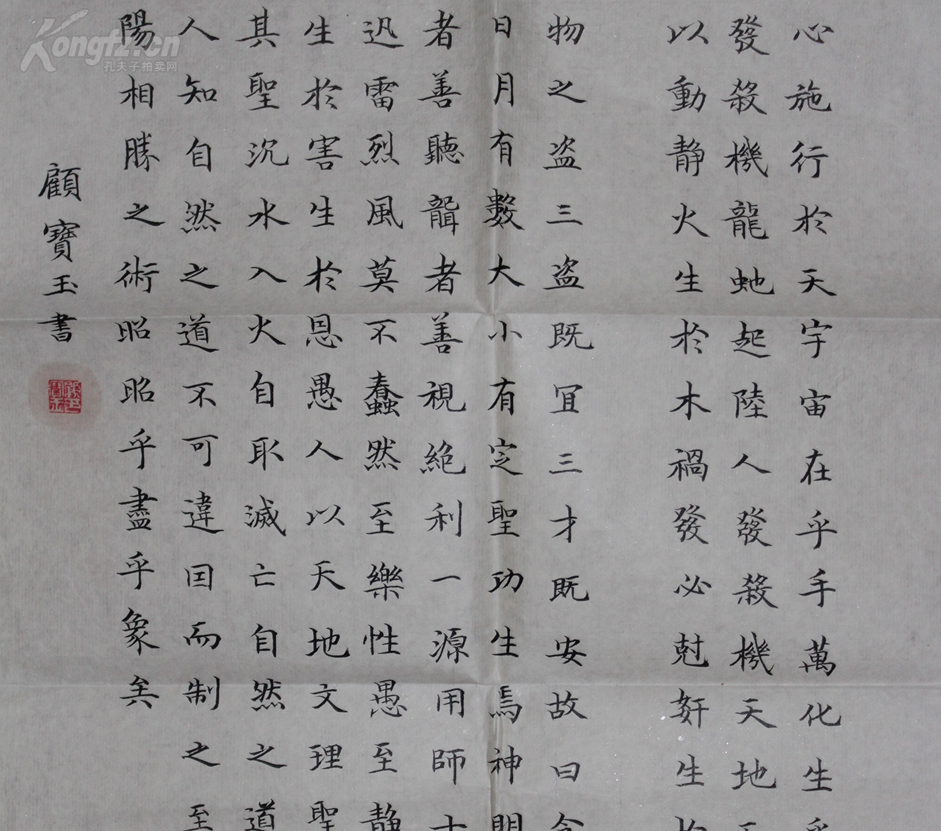 心施行於天宇宙在乎手萬化生乎
發殺機龍虵起陸人發殺機天地
以動静火生於木禍發必尅奸生於
物之盗三盗既宜三才既安故曰食
日月有數大小有定聖功生焉神明
者善聽聾者善視絶利一源用師十
迅雷烈風莫不蠢然至樂性愚至静
生於害生於恩愚人以天地文理聖
其聖沉水入火自取滅亡自然之道
人知自然之道不可違因而制之至
陽相勝之術昭昭乎盡乎象矣
顧寶玉書
Kongfz.cn
孔夫子拍卖网